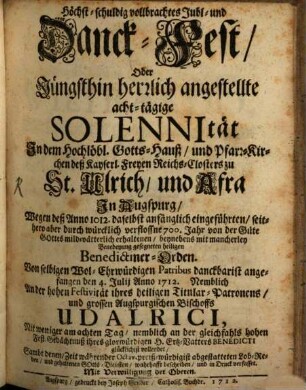 Höchst-schuldig vollbrachtes Jubl- und
Danck-Fest/
Oder
Jüngsthin herrlich angestellte
acht-tägige
SOLENNItät
In dem Hochlöbl. Gotts-Hauß/ und Pfarr-Kir-
chen deß Kayserl. Freyen Reichs-Closters zu
St. Ulrich/ und Afra
In Augspurg/
Wegen deß Anno 1012. daselbst anfänglich eingeführten/ seit-
hero aber durch würcklich verflossne 700. Jahr von der Güte
Gottes mildvätterlich erhaltenen/ beynebens mit mancherley
Benedeyung gesegneten heiligen
Benedictiner-Orden.
Von selbigen Wol-Ehrwürdigen Patribus danckbarist ange-
fangen den 4. Julii Anno 1712. Nemblich
An der hohen Festivität ihres heiligen Titular-Patronens/
und grossen Augspurgischen Bischoffs
UDALRICI,
Mit weniger am achten Tag/ nemblich an der gleichfahls hohen
Fest-Gedächtnuß ihres glorwürdigen H. Ertz-Vatters BENEDICTI
glücklichist vollendet.
Sambt denen/ Zeit währender Octav, preißwürdigist abgestatteten Lob-Re-
den/ und gehaltenen
Mit Verwilligung der Oberen.
Augspurg/ gedruckt bey Joseph Gruber/ Cathol. Buchtr. 1712.